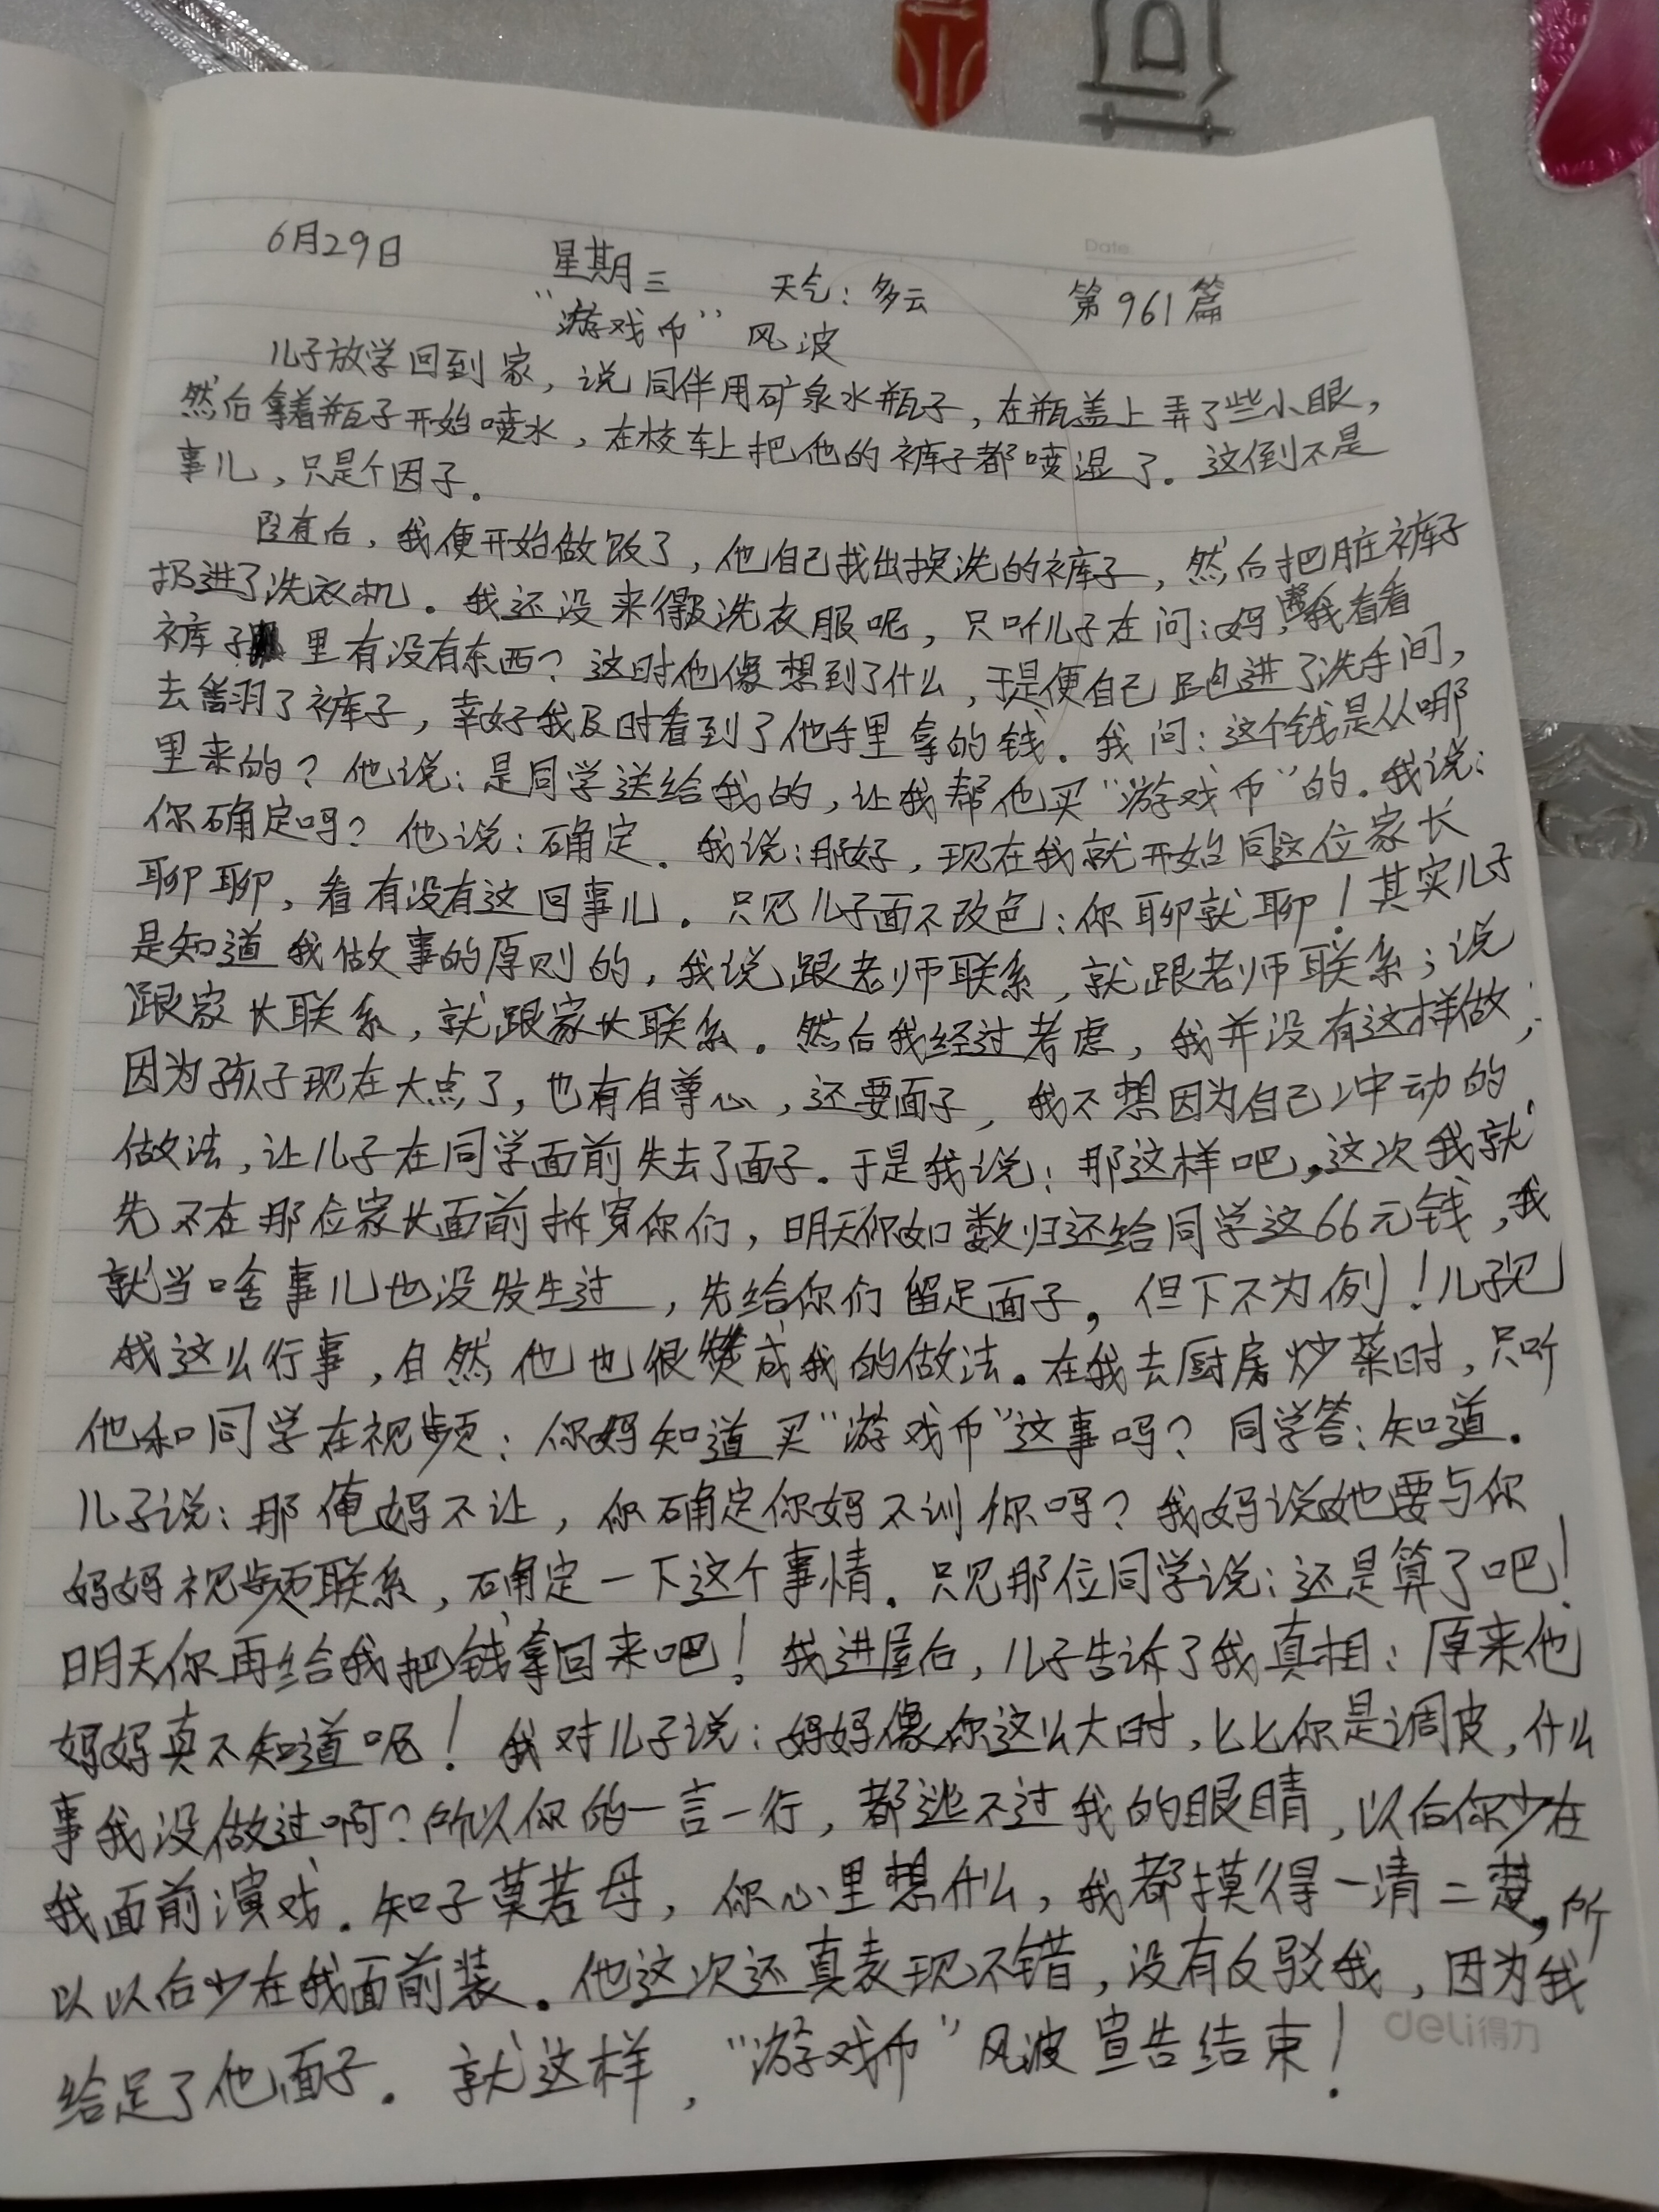 Date
6月29日 星期三 天气:多云 第961篇
“游戏币”风波
儿子放学回到家,说同伴用矿泉水瓶子,在瓶盖上弄了些小眼,
然后拿着瓶子开始喷水,在校车上把他的裤子都喷湿了。这倒不是
事儿,只是个因子。
随后,我便开始做饭了,他自己找出换洗的裤子,然后把脏裤子
扔进了洗衣机。我还没来得及洗衣服呢,只听儿子在问:妈,帮我看看
裤子里有没有东西?这时他像想到了什么,于是便自己跑进了洗手间,
去翻了裤子,幸好我及时看到了他手里拿的钱。我问:这个钱是从哪
里来的?他说:是同学送给我的,让我帮他买“游戏币”的。我说:
你确定吗?他说:确定。我说:那好,现在我就开始同这位家长
聊聊,看有没有这回事儿。只见儿子面不改色:你聊就聊!其实儿子
是知道我做事的原则的,我说跟老师联系,就跟老师联系;说
跟家长联系,就跟家长联系。然后我经过考虑,我并没有这样做,
因为孩子现在大点了,也有自尊心,还要面子,我不想因为自己冲动的
做法,让儿子在同学面前失去了面子。于是我说:那这样吧,这次我就
先不在那位家长面前拆穿你们,明天你如数归还给同学这66元钱,我
就当啥事儿也没发生过,先给你们留足面子,但下不为例!儿子见
我这么行事,自然他也很赞成我的做法。在我去厨房炒菜时,只听
他和同学在视频:你妈知道买“游戏币”这事吗?同学答:知道。
儿子说:那俺妈不让,你确定你妈不训你吗?我妈说她要与你
妈妈视频联系,确定一下这个事情。只见那位同学说:还是算了吧!
明天你再给我把钱拿回来吧!我进屋后,儿子告诉了我真相:原来他
妈妈真不知道呢!我对儿子说:妈妈像你这么大时,比你是调皮,什么
事我没做过啊?所以你的一言一行,都逃不过我的眼睛,以后你少在
我面前演戏。知子莫若母,你心里想什么,我都摸得一清二楚,所
以以后少在我面前装。他这次还真表现不错,没有反驳我,因为我
给足了他面子。就这样,“游戏币”风波宣告结束!
deli得力